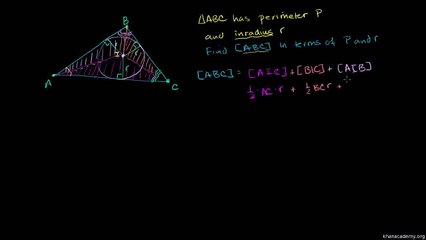 B
I
r
A
C
△ABC has perimeter P
and inradius r
Find [ABC] in terms of P and r
[ABC] = [AIC] + [BIC] + [AIB]
½·AC·r + ½BCr +
khanacademy.org